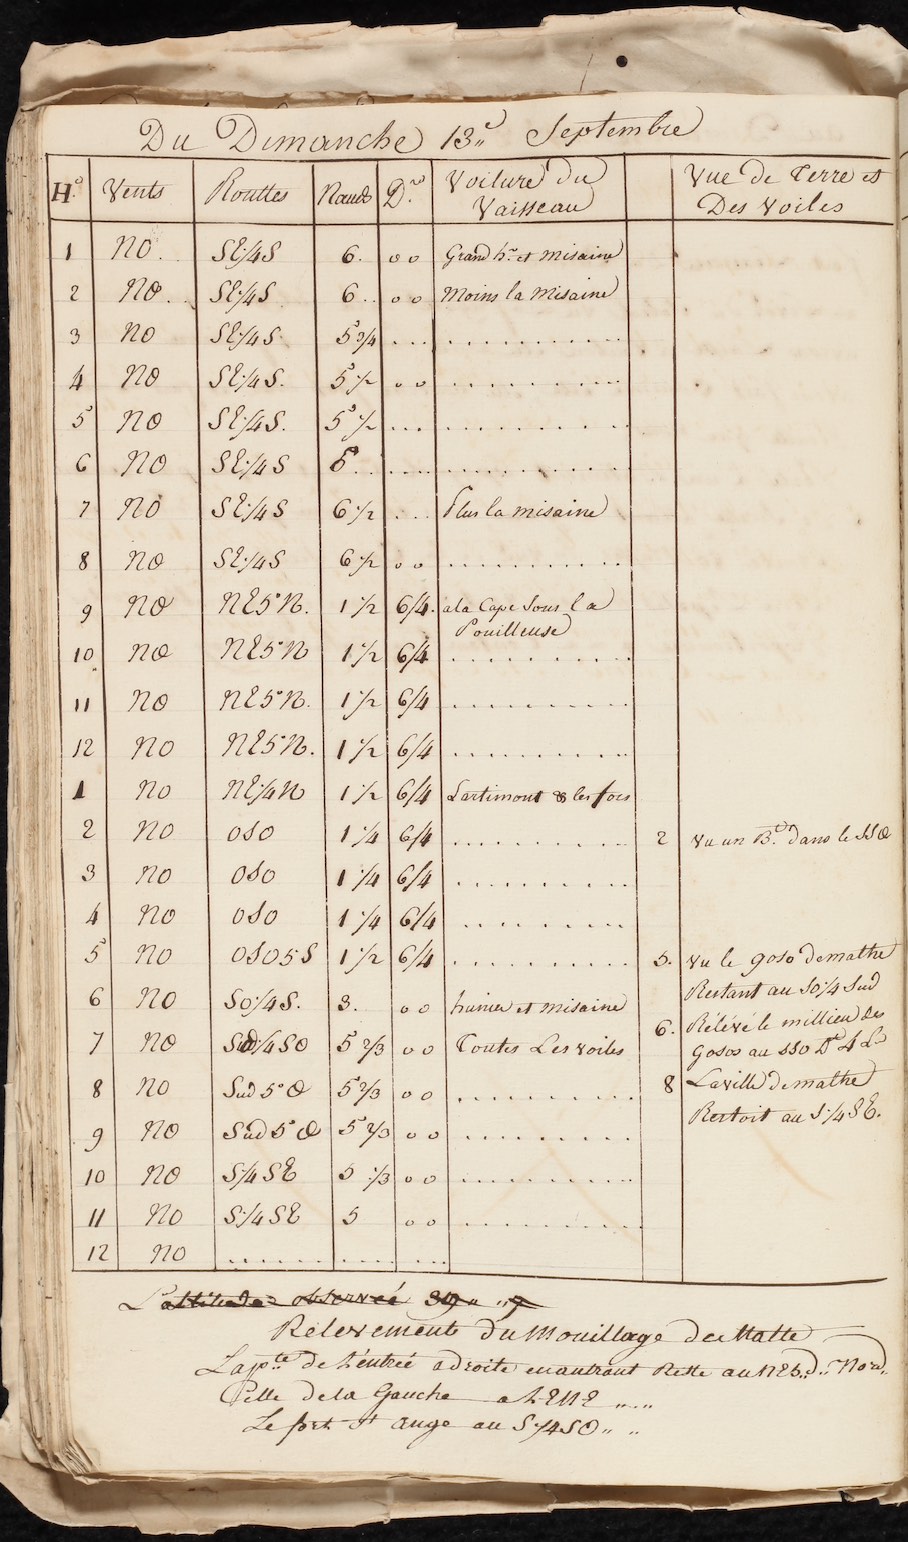 Du Dimanche 13.e Septembre
H.e Vents Routtes Nœuds D.ve Voilure du Vaisseau Vue de Terre et Des Voiles
1 NO. SE:1/4S 6. 00 Grand h.r et misaine
2 NO. SE:1/4S 6.. 00 Moins la misaine
3 NO SE:1/4S. 5 3/4 ... ...........
4 NO SE:1/4S. 5 1/2 00 ..........
5 NO SE:1/4S. 5 1/2 ... ..........
6 NO SE:1/4S 6... .... ...........
7 NO SE:1/4S 6 1/2 ... Plus la misaine
8 NO SE:1/4S 6 1/2 00 ...........
9 NO NE5°N. 1 1/2 6/4. ala Cape Sous la
Pouilleuse
10 NO NE5°N 1 1/2 6/4 ..........
11 NO NE5°N. 1 1/2 6/4 ..........
12 NO NE5°N. 1 1/2 6/4 ..........
1 NO NE:1/4N 1 1/2 6/4 Lartimont & les focs
2 NO OSO 1 1/4 6/4 .......... 2 vu un B.t dans le SSO
3 NO OSO 1 1/4 6/4 ..........
4 NO OSO 1 1/4 6/4 ..........
5 NO OSO5°S 1 1/2 6/4 .......... 5. vu le goso demathe
Restant au SO:1/4 Sud
6 NO SO:1/4S. 3. 00 hunier et misaine
6. Rélévé le millieu des
7 NO Sud:1/4SO 5 2/3 00 Toutes Les voiles
Gosos au SSO
8 NO Sud 5°O 5 2/3 00 .......... 8 La ville demathe
Restoit au S:1/4SE.
9 NO Sud 5°O 5 2/3 00 ..........
10 NO S:1/4SE 5 1/3 00 ..........
11 NO S:1/4SE 5 00 ..........
12 NO ....... .... ...
Lattitude observeé 39,, ,,7
Relevement du Mouillage de Malte
La p.te de l'éntrée adroite en antrant Reste au NE5.d. Nord,,
Celle de la Gauche a L'ENE ,,..,,
Le fort St ange au S:1/4SO,, ,,